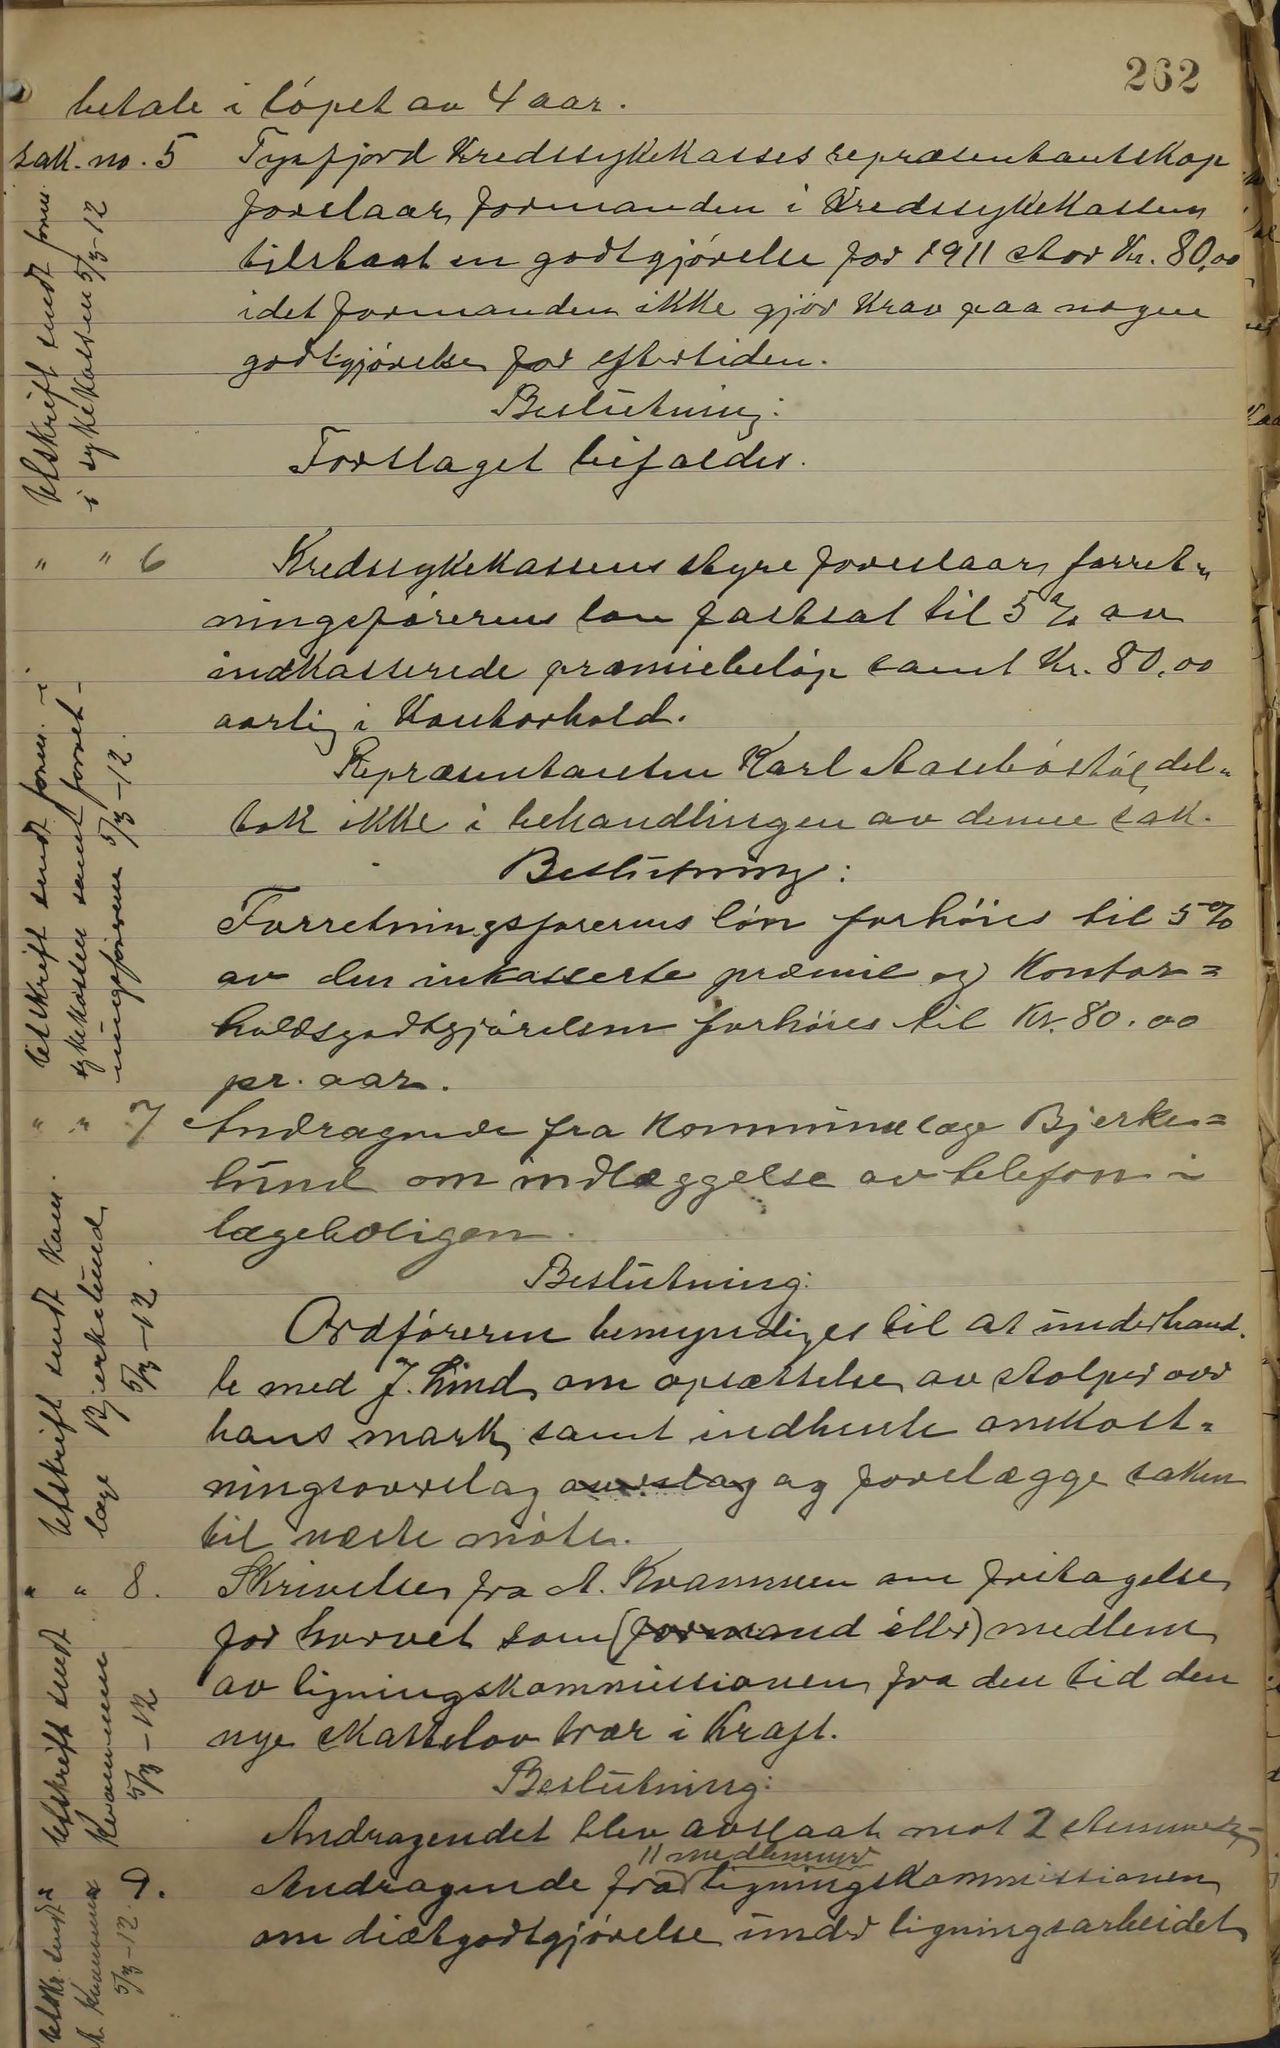 262
betale i løpet av 4 aar.
sak. no. 5 Tysfjord Kredssykekasses repræsentantskap
foreslaar formanden i Kredssykekassen
tilstaat en godtgjørelse for 1911 stor Kr. 80,00
idet formanden ikke gjør krav paa nogen
godtgjørelse for eftertiden.
Beslutning:
Forslaget bifaldes.
Utskrift sendt form.
i sykekassen 5/3-12
" " 6 Kredssykekassens styre foreslaar forret-
ningsførerens løn fastsat til 5 % av
indkasserede præmiebeløp samt Kr. 80,00
aarlig i Kontorhold.
Repræsentanten Karl del-
tok ikke i behandlingen av denne sak.
Beslutning:
Forretningsførerens løn forhøies til 5 %
av den inkasserte præmie og Kontor=
holdsgodtgjørelsen forhøies til Kr. 80.00
pr. aar.
Utskrift sendt form. i
sykekassen samt forret-
ningsføreren 5/3-12.
" " 7 Andragende fra Kommunelæge Bjerke=
lund om indlæggelse av telefon i
lægeboligen.
Beslutning:
Ordføreren bemyndiges til at underhand-
le med J. Lind om opsættelse av stolper over
hans mark samt indhente omkost-
ningsoverslag overslag og forelægge saken
til næste møte.
Utskrift sendt kom.
læge Bjerkelund
5/3-12.
" " 8. Skrivelse fra A. Kvammen om fritagelse
for hvervet som (formand eller) medlem
av ligningskommissionen fra den tid den
nye skattelov trær i kraft.
Beslutning:
Andragendet blev avslaat mot 2 stemmer.
Utskrift sendt
Kvammen
5/3-12
" 9. Andragende fra ligningskommissionen
11 medlemmer
om diætgodtgjørelse under ligningsarbeidet
Utskr. sendt
A. Kvammen
5/3-12.